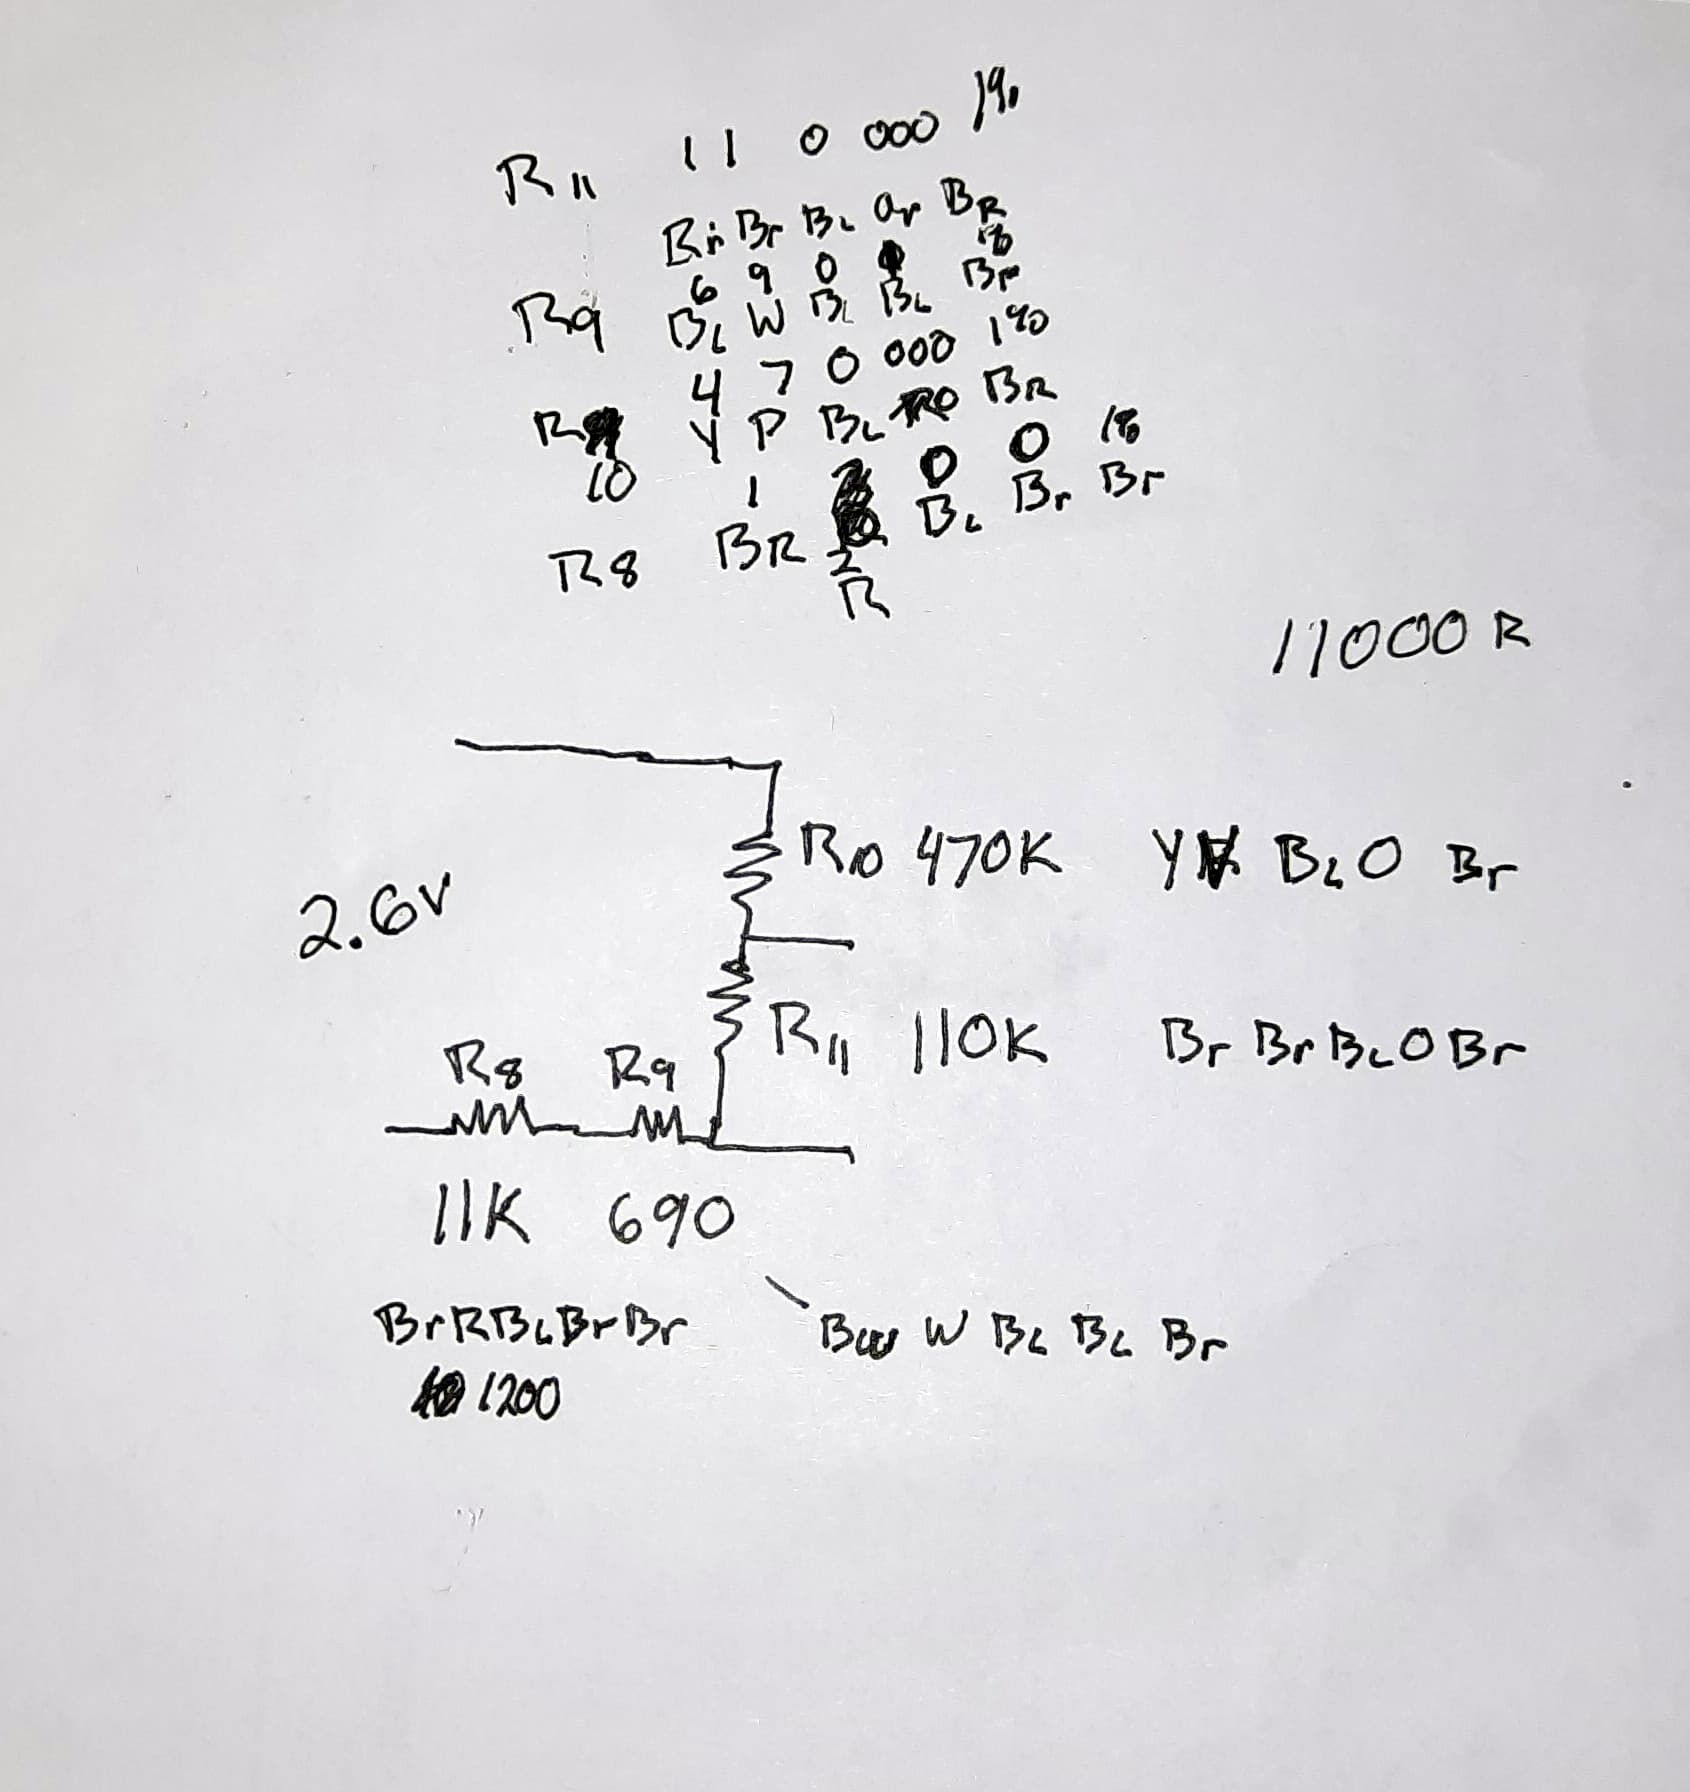 R11 1 1 0 000 1%
Br Br BL Or BR
6 9 0 1%
R9 BL W BL BL Br
4 7 0 000 1%
R Y P BL BR
10 1 0 0 1%
R8 BR BL Br Br
2
R
11000 R
R10 470K Y BL O Br
2.6V
R11 110K Br Br BL O Br
R8 R9
11K 690
Br R BL Br Br W BL BL Br
1200